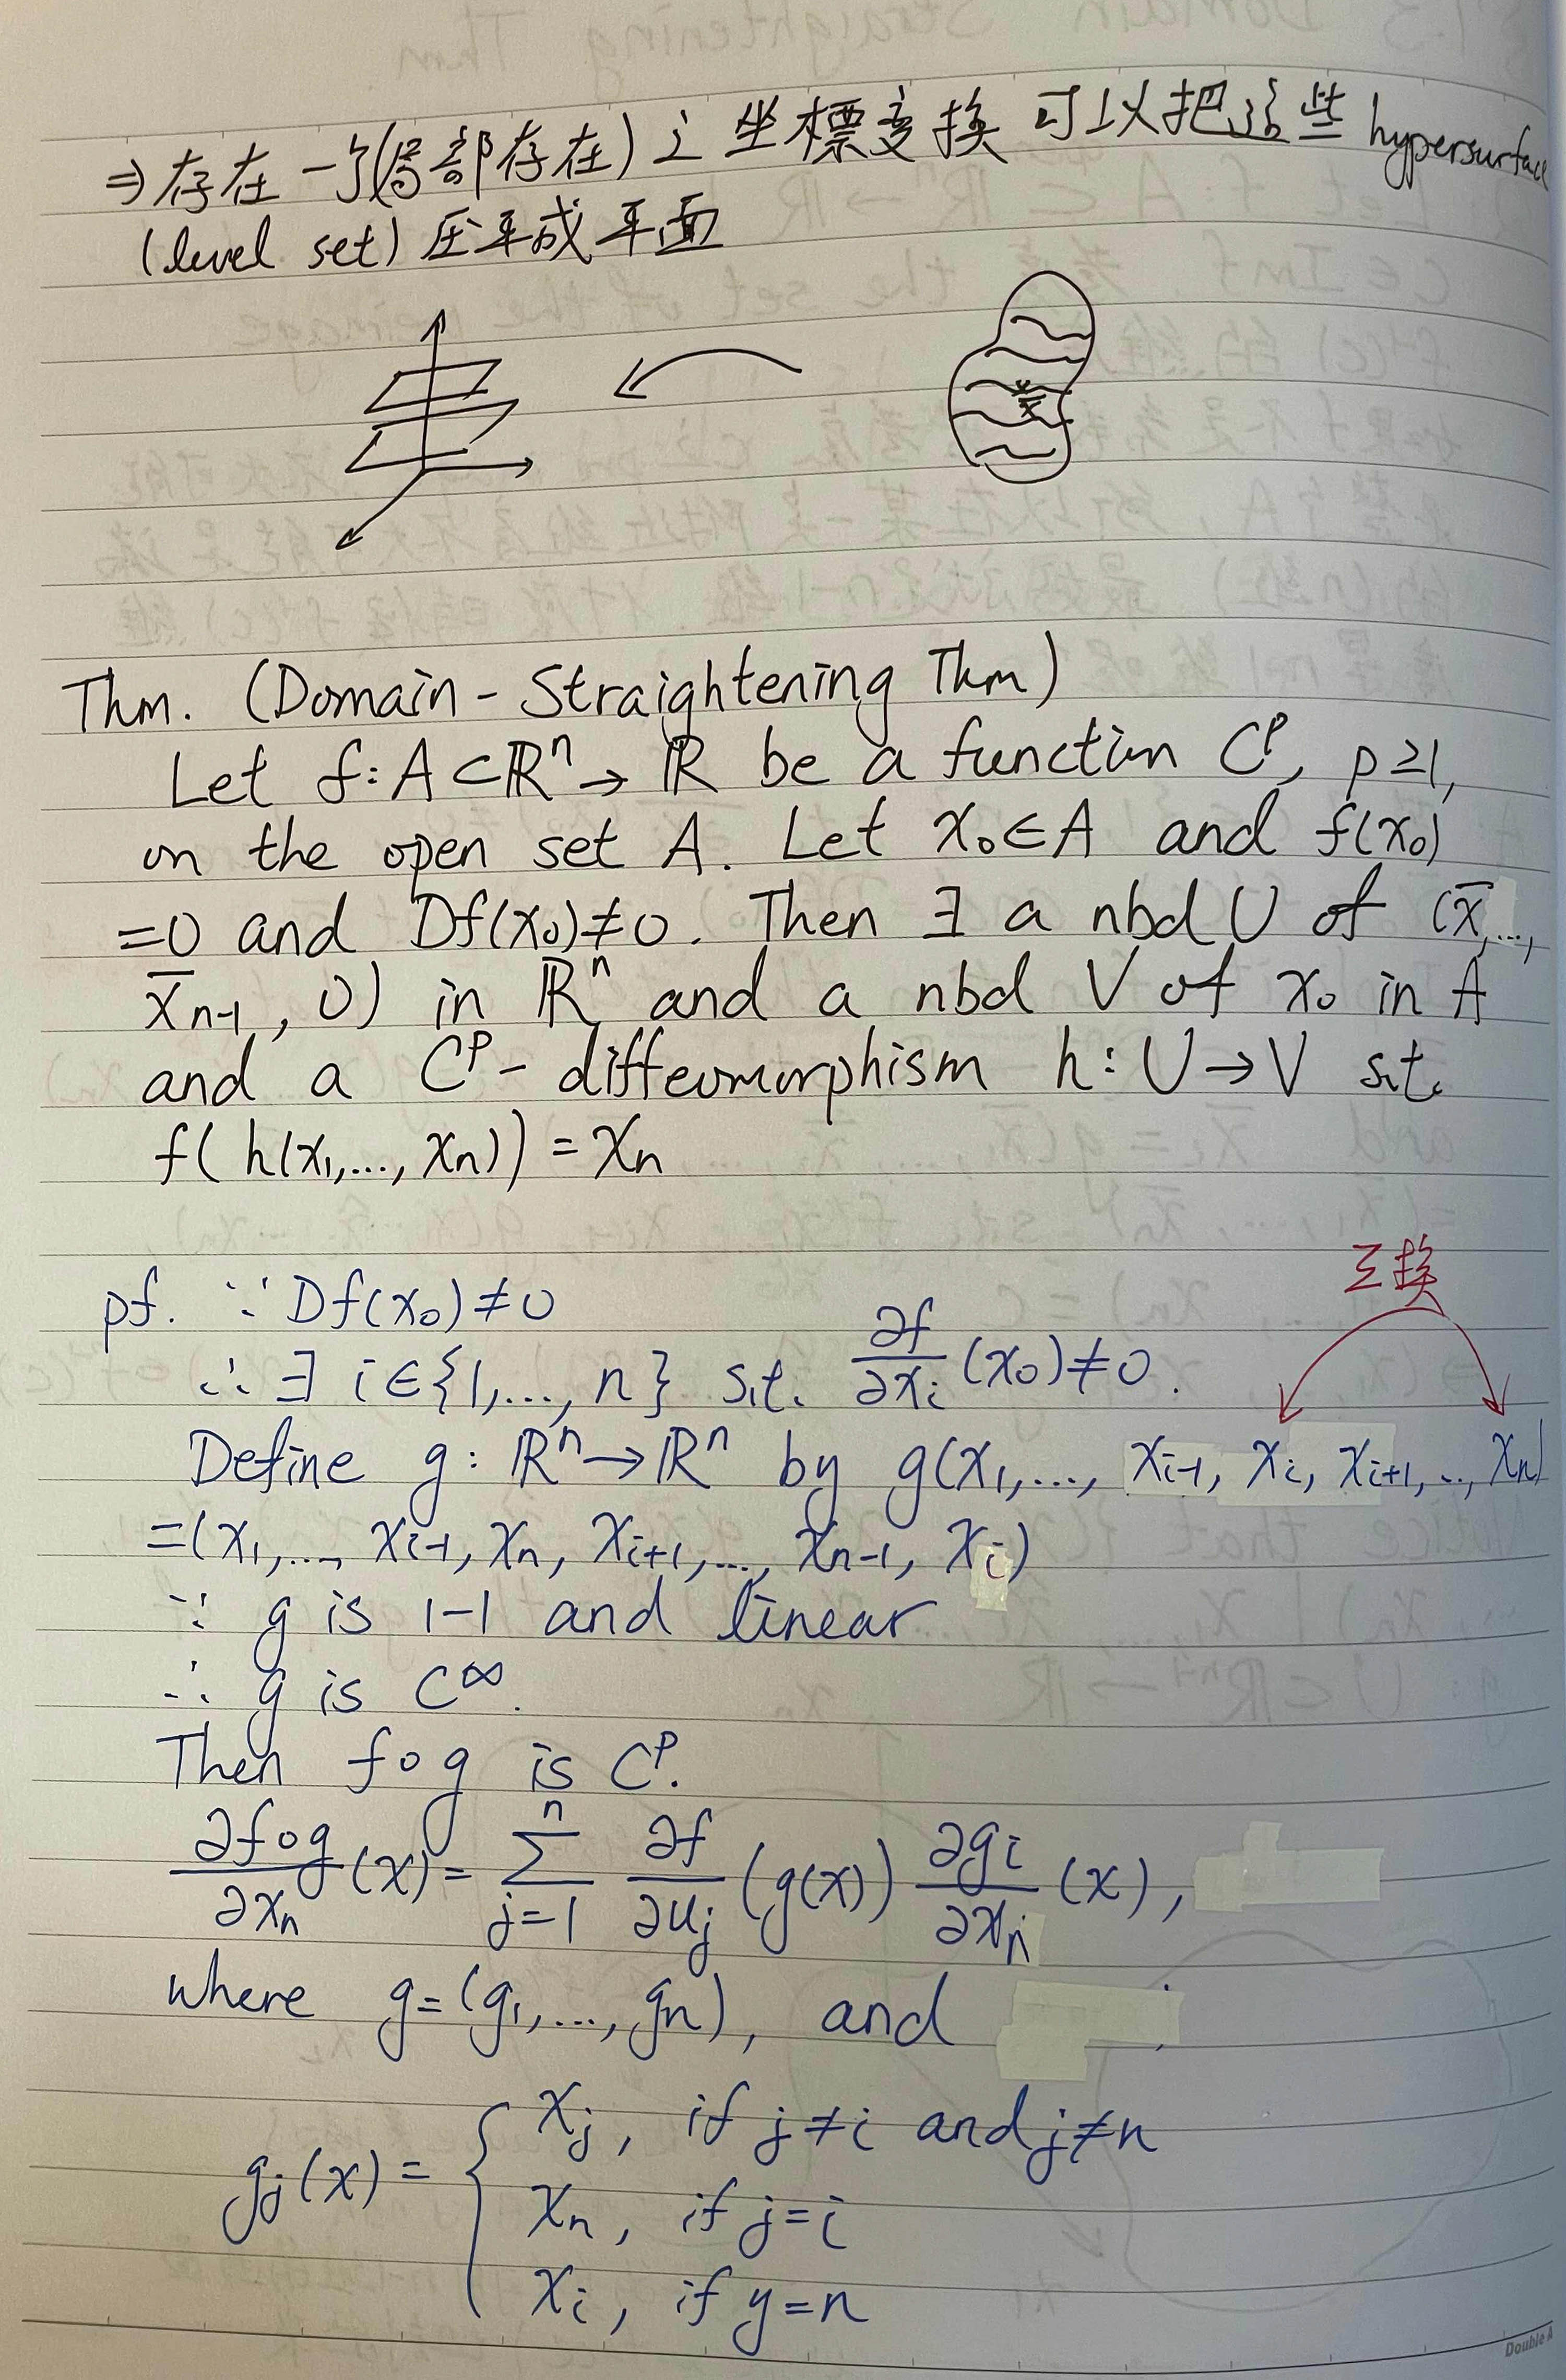 ⇒ 存在一个(局部存在)之坐標变換 可以把這些 hypersurface
(level set) 压平成平面
Thm. (Domain - Straightening Thm)
Let f: A ⊂ ℝⁿ → ℝ be a function Cᵖ, p ≥ 1,
on the open set A. Let x₀ ∈ A and f(x₀)
= 0 and Df(x₀) ≠ 0. Then ∃ a nbd U of (x̄, ...,
x̄ₙ₋₁, 0) in ℝⁿ and a nbd V of x₀ in A
and a Cᵖ - diffeomorphism h: U → V s.t.
f(h(x₁, ..., xₙ)) = xₙ
互換
pf. ∵ Df(x₀) ≠ 0
∴ ∃ i ∈ {1, ..., n} s.t. ∂f/∂xᵢ (x₀) ≠ 0.
Define g: ℝⁿ → ℝⁿ by g(x₁, ..., xᵢ₋₁, xᵢ, xᵢ₊₁, .., xₙ)
= (x₁, ..., xᵢ₋₁, xₙ, xᵢ₊₁, ..., xₙ₋₁, xᵢ)
∵ g is 1-1 and linear
∴ g is C^∞.
Then f∘g is Cᵖ.
∂f∘g/∂xₙ (x) = Σ_{j=1}^{n} ∂f/∂uⱼ (g(x)) ∂gᵢ/∂xₙ (x),
where g = (g₁, ..., gₙ), and
gⱼ(x) = { xⱼ, if j ≠ i and j ≠ n
xₙ, if j = i
xᵢ, if y = n
Double A